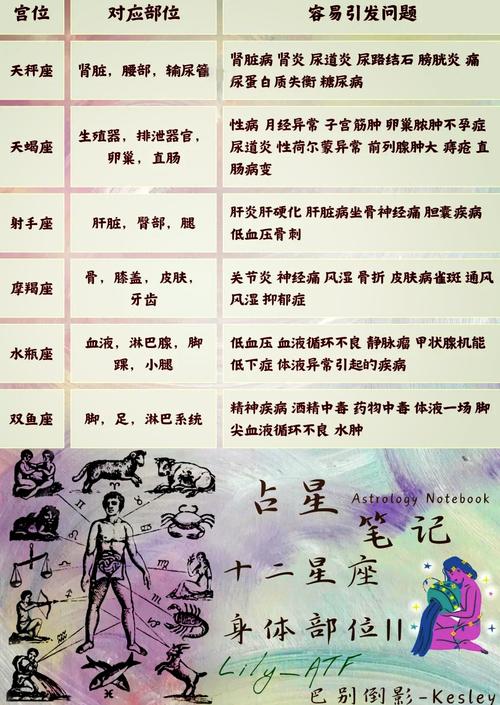 宫位 对应部位 容易引发问题
天秤座 肾脏，腰部，输尿管 肾脏病 肾炎 尿道炎 尿路结石 膀胱炎 痛
尿蛋白质失衡 糖尿病
天蝎座 生殖器，排泄器官，
卵巢，直肠
性病 月经异常 子宫筋肿 卵巢脓肿不孕症
尿道炎 性荷尔蒙异常 前列腺肿大 痔疮 直
肠病变
射手座 肝脏，臀部，腿 肝炎肝硬化 肝脏病坐骨神经痛 胆囊疾病
低血压骨刺
摩羯座 骨，膝盖，皮肤，
牙齿
关节炎 神经痛 风湿 骨折 皮肤病雀斑 通风
风湿 抑郁症
水瓶座 血液，淋巴腺，脚
踝，小腿
低血压 血液循环不良 静脉瘤 甲状腺机能
低下症 体液异常引起的疾病
双鱼座 脚，足，淋巴系统 精神疾病 酒精中毒 药物中毒 体液一场 脚
尖血液循环不良 水肿
占星 Astrology Notebook
笔记
十二星座
身体部位II
Lily_ATF
巴别倒影-Kesley